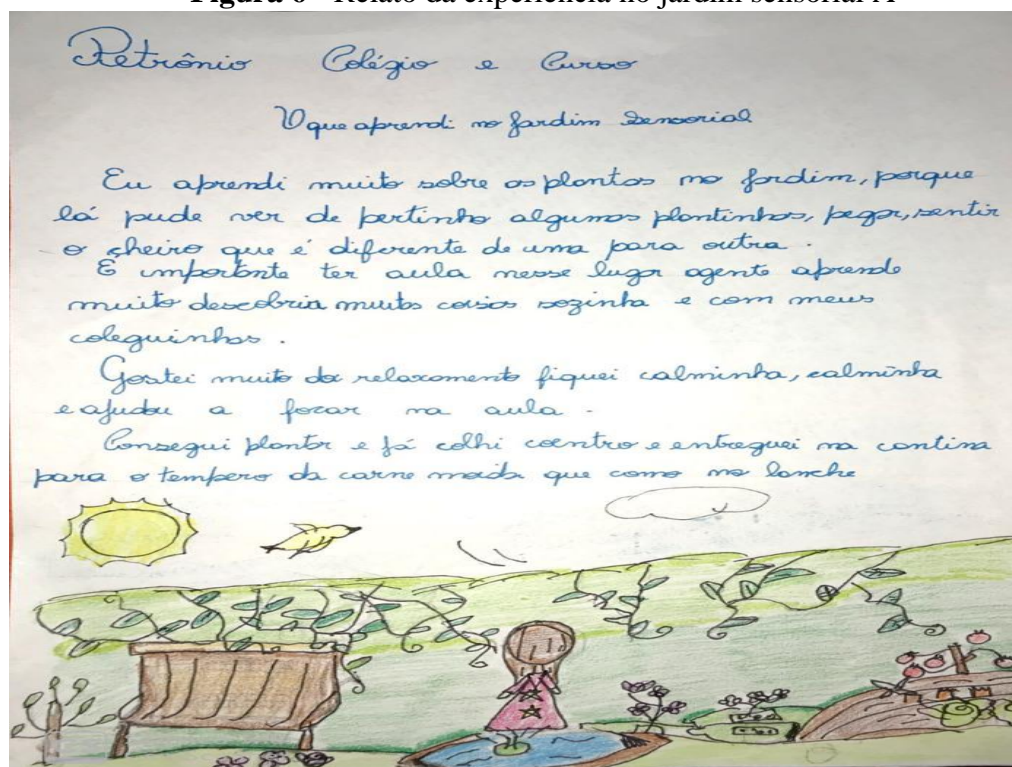 Figura 6 - Relato da experiência no jardim sensorial A
Petrônio Colégio e Curso
O que aprendi no Jardim Sensorial
Eu aprendi muito sobre as plantas no jardim, porque
lá pude ver de pertinho algumas plantinhas, pegar, sentir
o cheiro que é diferente de uma para outra.
É importante ter aula nesse lugar agente aprende
muito descobria muitas coisas sozinha e com meus
coleguinhas.
Gostei muito do relaxamento fiquei calminha, calminha
e ajudou a focar na aula.
Consegui plantar e já colhi coentro e entreguei na cantina
para o tempero da carne moída que como no lanche